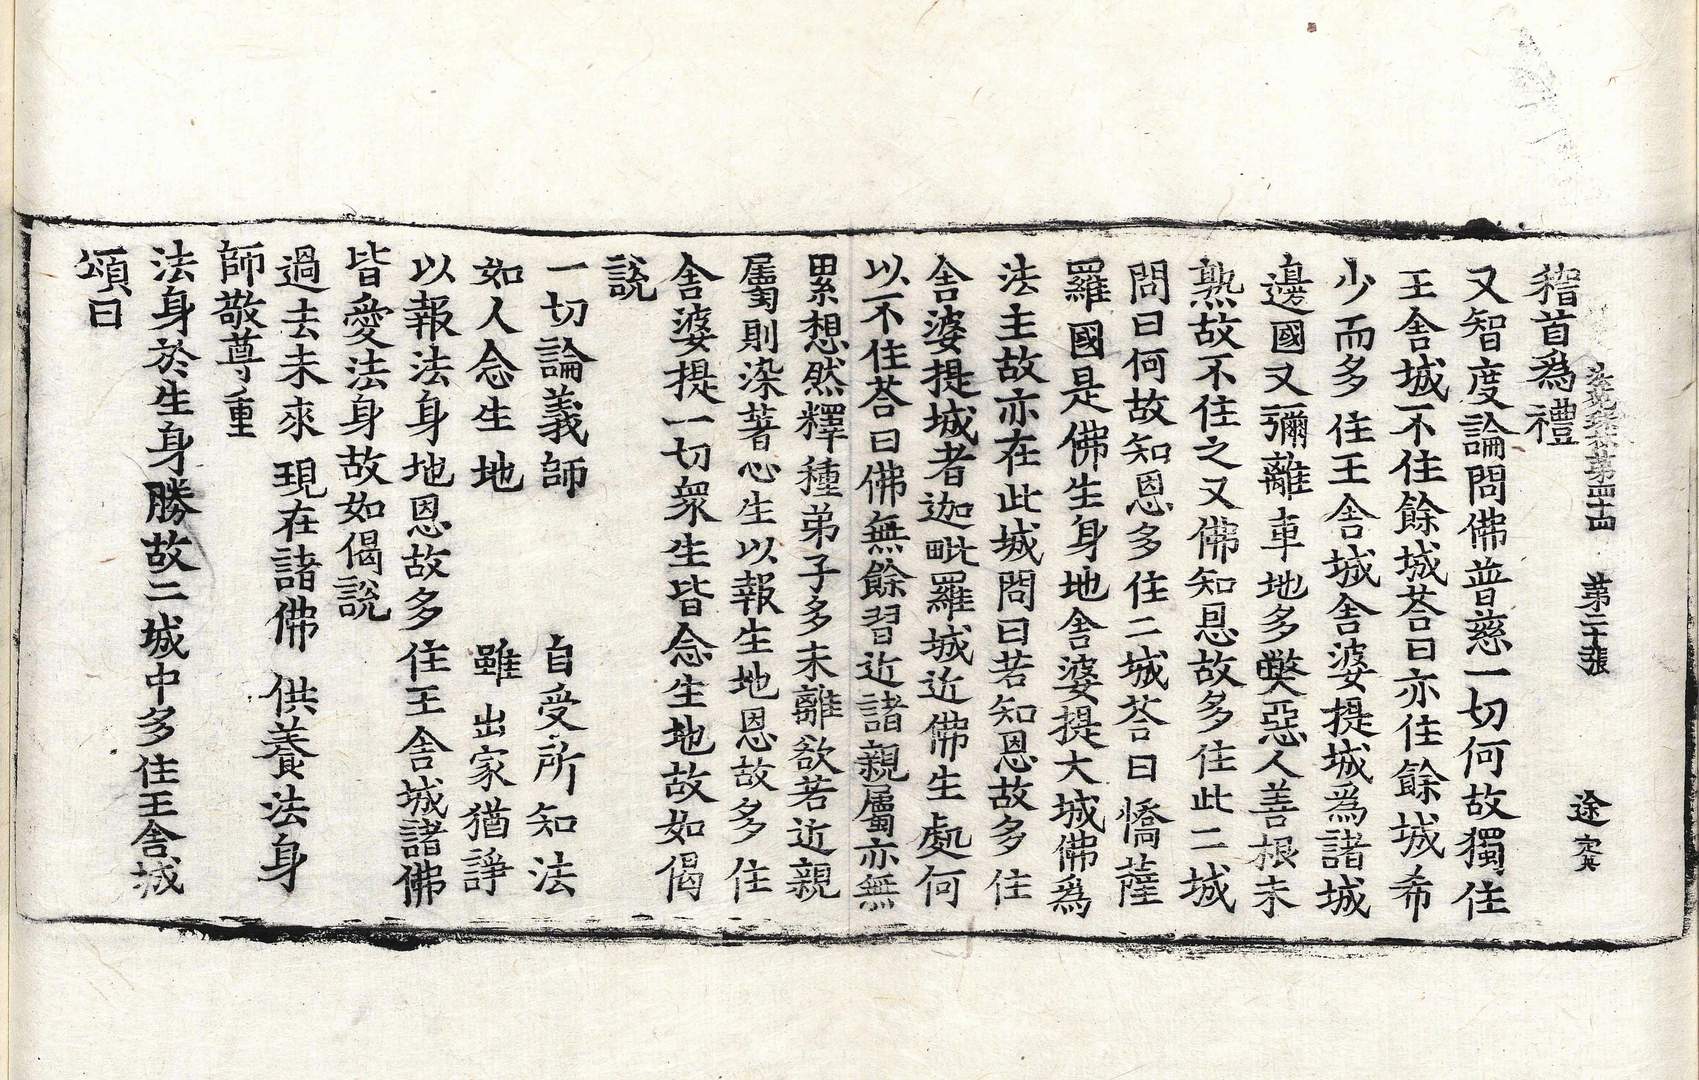 法苑珠林苐四十 苐二十張 途
稽首為禮
又智度論問佛普慈一切何故獨住
王舍城不住餘城荅曰亦住餘城希
少而多住王舍城舍婆提城為諸城
邊國又彌離車地多獘惡人善根未
熟故不住之又佛知恩故多住此二城
問曰何故知恩多住二城荅曰憍薩
羅國是佛生身地舍婆提大城佛為
法主故亦在此城問曰若知恩故多住
舍婆提城者迦毗羅城近佛生處何
以不住荅曰佛無餘習近諸親屬亦無
累想然釋種弟子多未離欲若近親
屬則染著心生以報生地恩故多住
舍婆提一切衆生皆念生地故如偈
說
一切論義師 自受所知法
如人念生地 雖出家猶諍
以報法身地恩故多住王舍城諸佛
皆愛法身故如偈說
過去未來 現在諸佛 供養法身
師敬尊重
法身於生身勝故二城中多住王舍城
頌曰